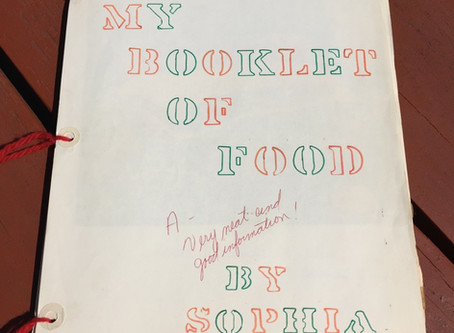 MY
BOOKLET
OF
FOOD
A -
Very neat and
good information!
BY
SOPHIA